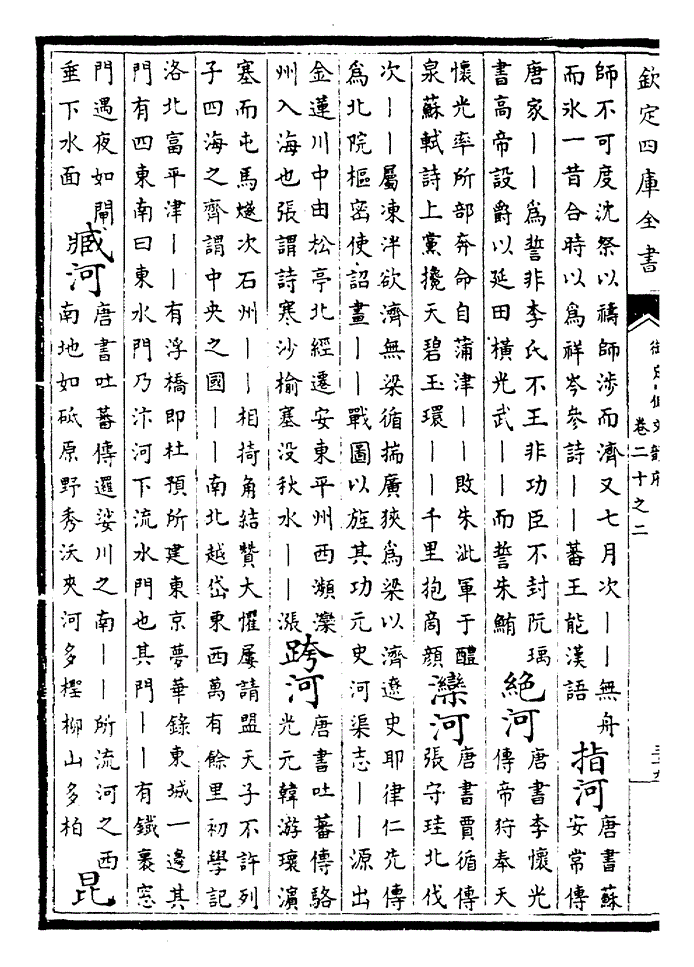 欽定四庫全書
卷二十之二
師不可度沈祭以禱師涉而濟又七月次丨丨無舟
而氷一昔合時以為祥岑參詩丨丨蕃王能漢語
指河
唐書蘇
安常傳
唐家丨丨為誓非李氏不王非功臣不封阮瑀
書高帝設爵以延田橫光武丨丨而誓朱鮪
絕河
唐書李懷光
傳帝狩奉天
懷光率所部奔命自蒲津丨丨敗朱泚軍于醴
泉蘇軾詩上黨攙天碧玉環丨丨千里抱商顔
灤河
唐書賈循傳
張守珪北伐
次丨丨屬凍泮欲濟無梁循揣廣狹為梁以濟遼史耶律仁先傳
為北院樞密使詔畫丨丨戰圖以旌其功元史河渠志丨丨源出
金蓮川中由松亭北經遷安東平州西瀕灤
州入海也張謂詩寒沙榆塞没秋水丨丨漲
跨河
唐書吐蕃傳駱
光元韓游瓌濵
塞而屯馬燧次石州丨丨相掎角結贊大懼屢請盟天子不許列
子四海之齊謂中央之國丨丨南北越岱東西萬有餘里初學記
洛北富平津丨丨有浮橋即杜預所建東京夢華錄東城一邊其
門有四東南曰東水門乃汴河下流水門也其門丨丨有鐵裹窓
門遇夜如閘
垂下水面
臧河
唐書吐蕃傳邏娑川之南丨丨所流河之西
南地如砥原野秀沃夾河多檉柳山多柏
昆